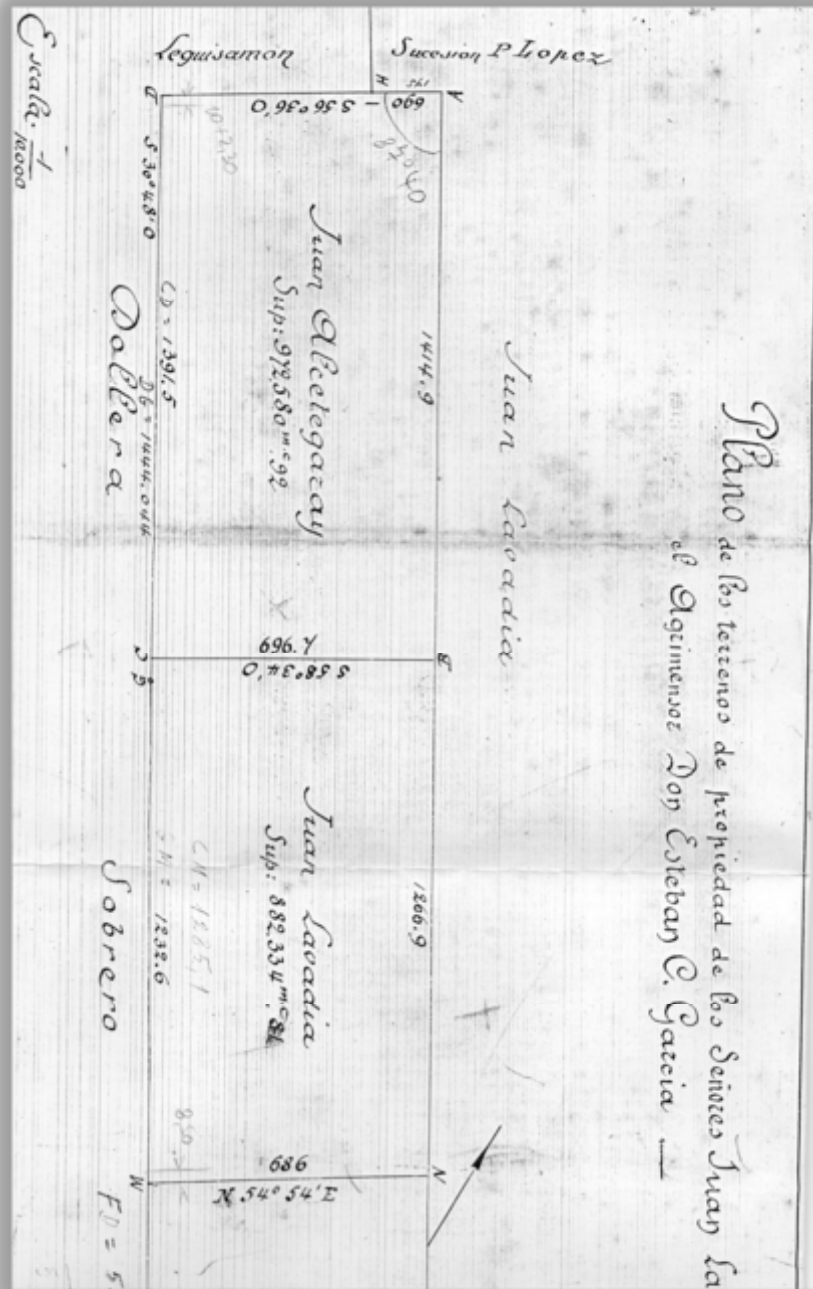 Plano de los terrenos de propiedad de los Señores Juan La
el Agrimensor Don Esteban C. Garcia
Sucesion P Lopez
Leguisamon
Juan Lavadia
A
H
195
690 — S 56°36'O
1414.9
Juan Alcetegaray
Sup: 972.580 m.c 92
S 30°48'O
CD = 1391.5
1444.044
Dallera
696.7
S 58°34'O
1266.9
Juan Lavadia
Sup: 882.334 m.c
CM = 1285,1
1232.6
Sobrero
850
689
N 54°54'E
N
FD = 5.
Escala. 1/10000